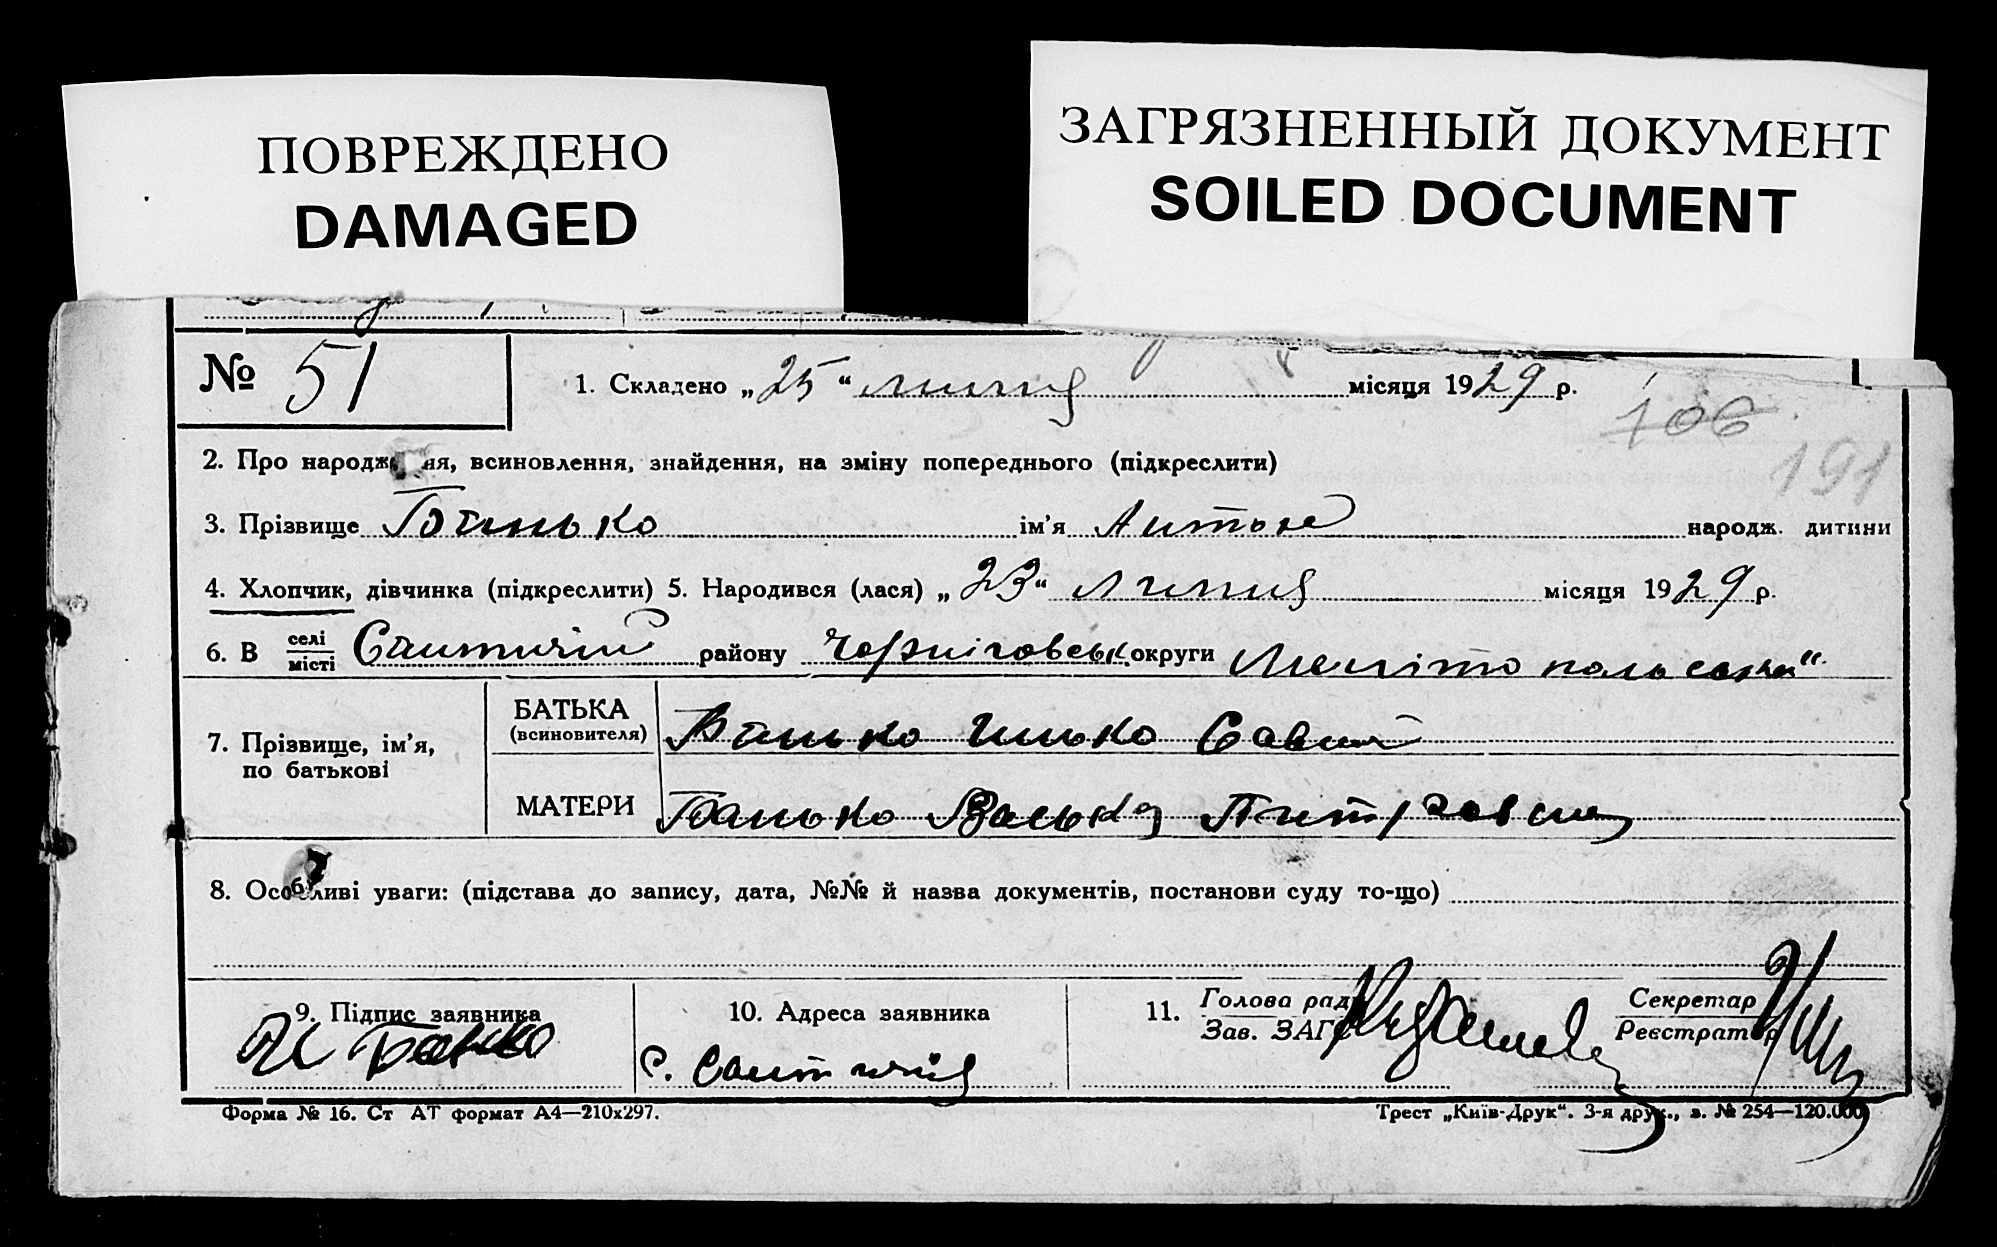 ПОВРЕЖДЕНО
DAMAGED
ЗАГРЯЗНЕННЫЙ ДОКУМЕНТ
SOILED DOCUMENT
№ 51
1. Складено „25“ липня місяця 1929 р.
106
191
2. Про народження, всиновлення, знайдення, на зміну попереднього (підкреслити)
3. Прізвище Банько ім'я Антон народж. дитини
4. Хлопчик, дівчинка (підкреслити) 5. Народився (лася) „23“ Липня місяця 1929 р.
6. В селі
місті
району Черніговськ округи
7. Прізвище, ім'я,
по батькові
БАТЬКА
(всиновителя)
Банько Илько Савич
МАТЕРИ
Банько
8. Особливі уваги: (підстава до запису, дата, №№ й назва документів, постанови суду то-що)
9. Підпис заявника
И Банко
10. Адреса заявника
с.
11. Голова ради
Зав. ЗАГС
Секретар
Реєстратор
Форма № 16. Ст АТ формат А4—210х297.
Трест „Київ-Друк“. 3-я друк., з. № 254—120.000